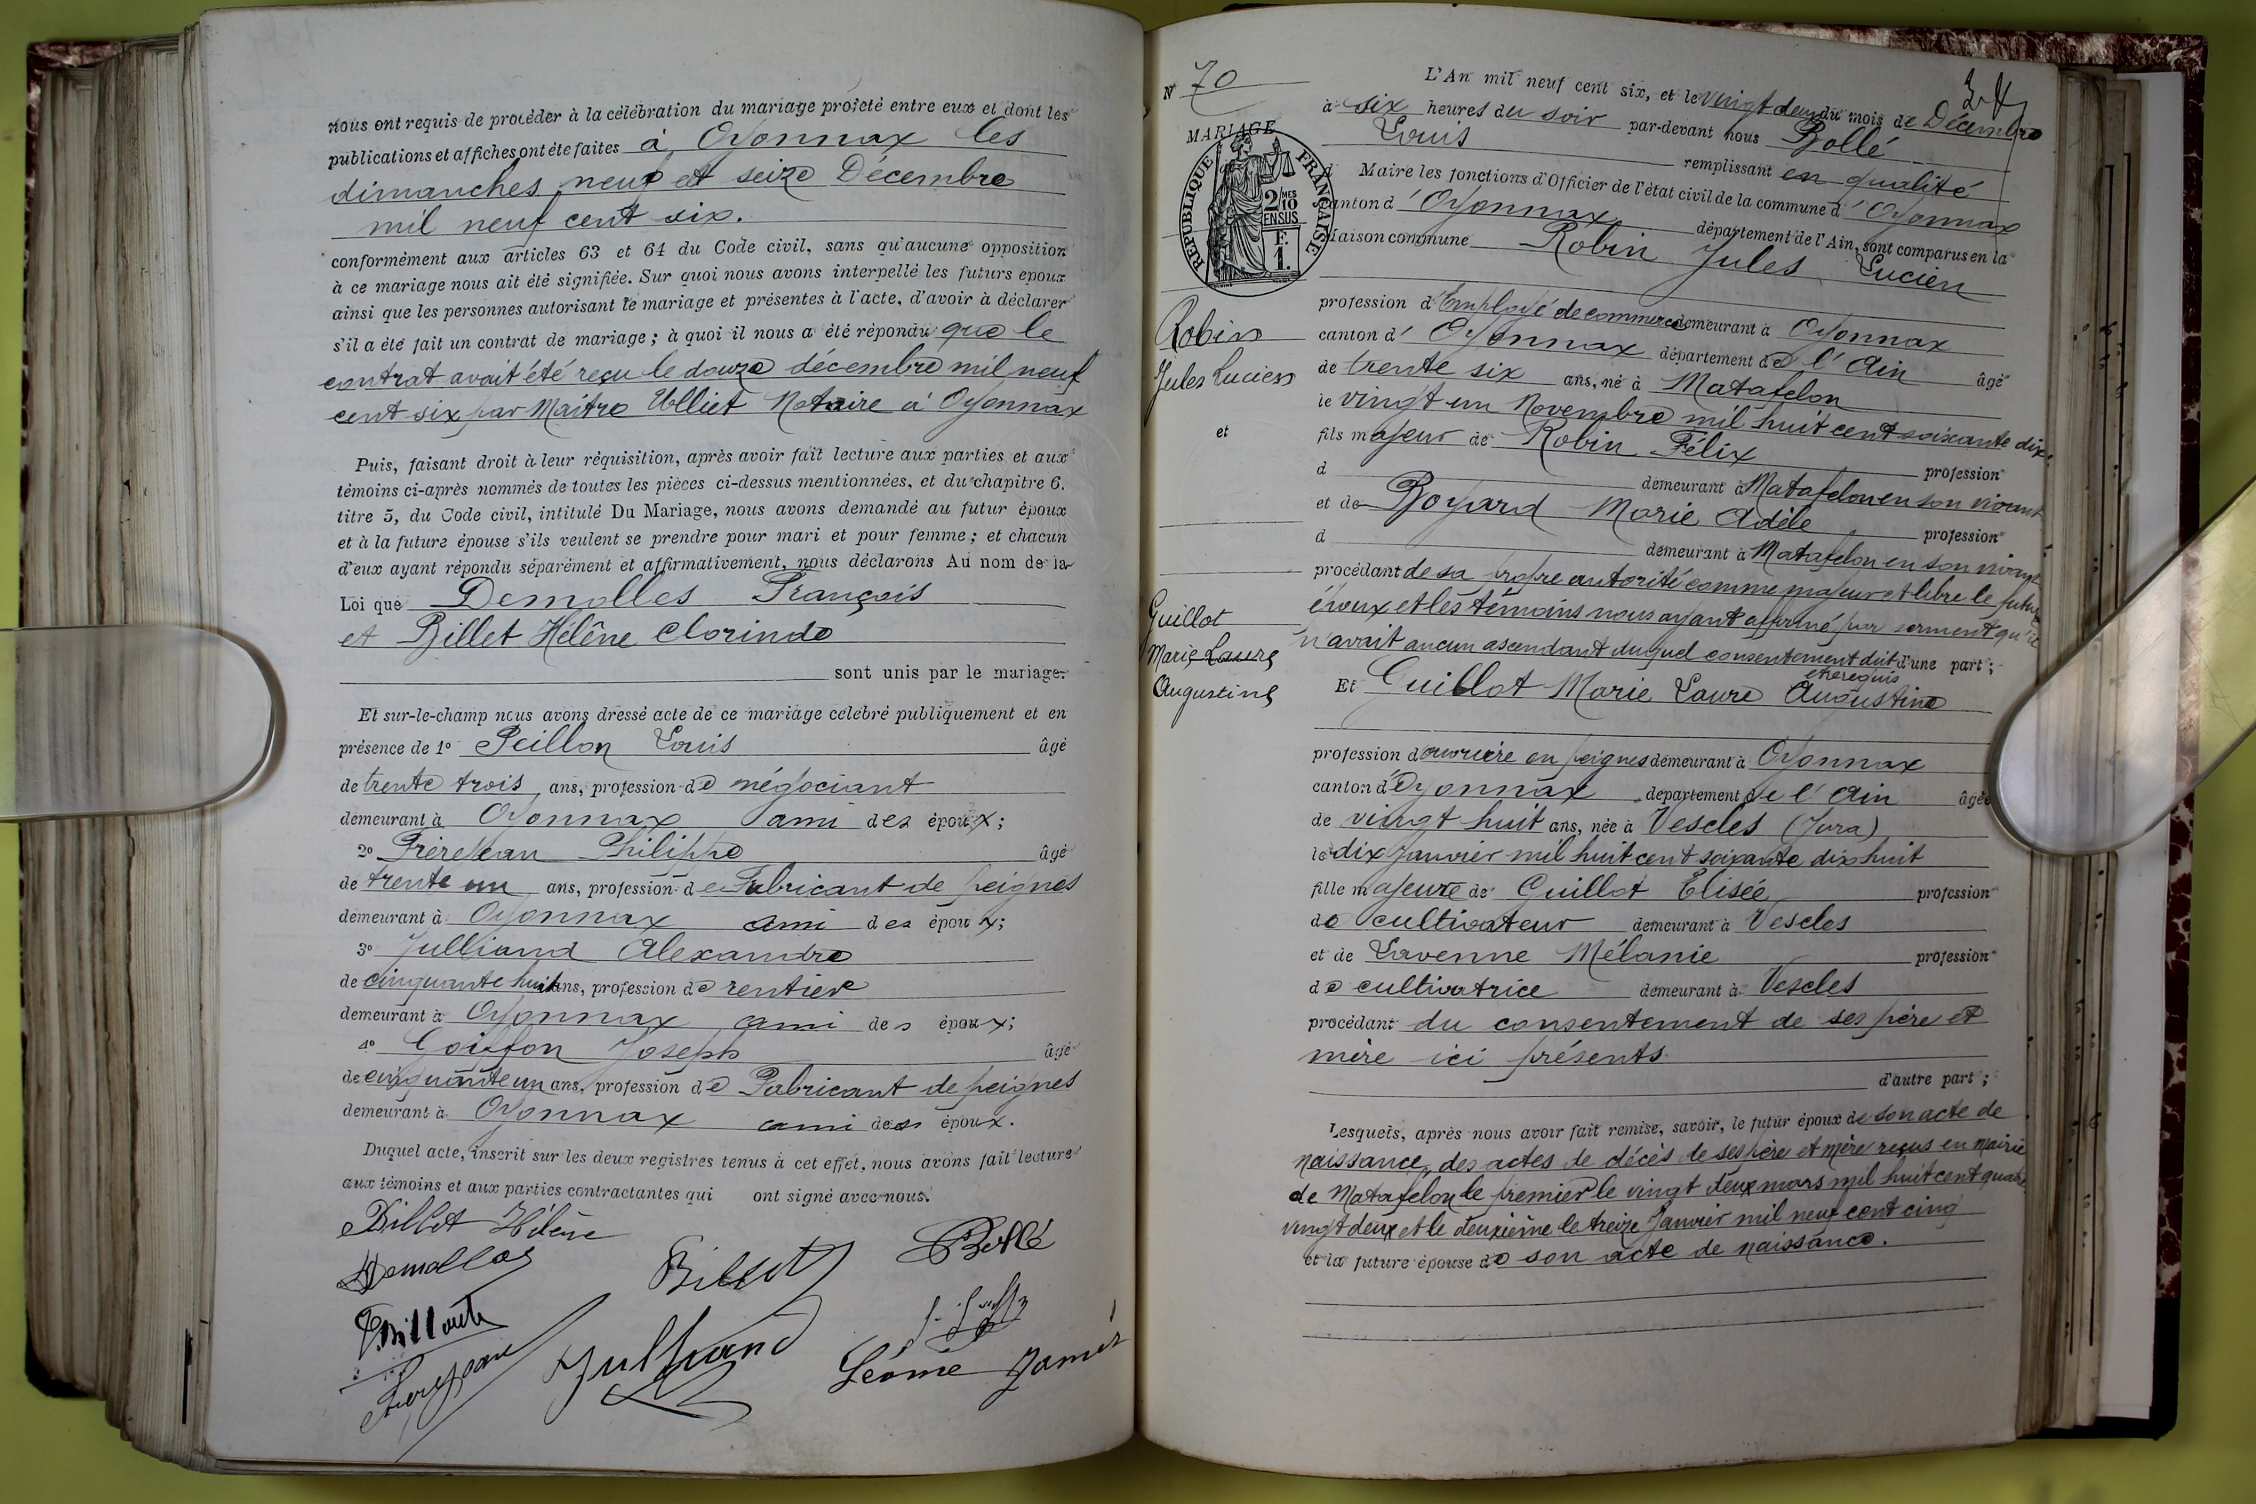 nous ont requis de procéder à la célébration du mariage projeté entre eux et dont les
publications et affiches ont été faites à Oyonnax les
dimanches neuf et seize Décembre
mil neuf cent six.
conformément aux articles 63 et 64 du Code civil, sans qu'aucune opposition
à ce mariage nous ait été signifiée. Sur quoi nous avons interpellé les futurs époux
ainsi que les personnes autorisant le mariage et présentes à l'acte, d'avoir à déclarer
s'il a été fait un contrat de mariage ; à quoi il nous a été répondu que le
contrat avait été reçu le douze décembre mil neuf
cent six par Maître Ulliet Notaire à Oyonnax
Puis, faisant droit à leur réquisition, après avoir fait lecture aux parties et aux
témoins ci-après nommés de toutes les pièces ci-dessus mentionnées, et du chapitre 6.
titre 5, du Code civil, intitulé Du Mariage, nous avons demandé au futur époux
et à la future épouse s'ils veulent se prendre pour mari et pour femme ; et chacun
d'eux ayant répondu séparément et affirmativement, nous déclarons Au nom de la
Loi que Demolles François
et Billet Hélène Clorinde
sont unis par le mariage.
Et sur-le-champ nous avons dressé acte de ce mariage célébré publiquement et en
présence de 1° Peillon Louis âgé
de trente trois ans, profession de négociant
demeurant à Oyonnax ami des époux ;
2° Frèrejean Philippe âgé
de trente un ans, profession de Fabricant de peignes
demeurant à Oyonnax ami des époux ;
3° Julliand Alexandre
de cinquante huit ans, profession de rentier
demeurant à Oyonnax ami des époux ;
4° Goiffon Joseph âgé
de cinquante un ans, profession de Fabricant de peignes
demeurant à Oyonnax ami des époux.
Duquel acte, inscrit sur les deux registres tenus à cet effet, nous avons fait lecture
aux témoins et aux parties contractantes qui ont signé avec nous.
Billet Hélène
Demolles
Billet
Bollé
Julliand
Léonie
N° 70
MARIAGE
RÉPUBLIQUE FRANÇAISE
2 MES 10
EN SUS
F.
1.
Robin
Jules Lucien
et
Guillot
Marie Laure
Augustine
L'An mil neuf cent six, et le vingt deux du mois de Décembre
à six heures du soir par-devant nous Bollé
Louis remplissant en qualité
d Maire les fonctions d'Officier de l'état civil de la commune d'Oyonnax
canton d'Oyonnax département de l'Ain, sont comparus en la
Maison commune Robin Jules Lucien
profession d'Employé de commerce demeurant à Oyonnax
canton d'Oyonnax département de l'Ain âgé
de trente six ans, né à Matafelon
le vingt un Novembre mil huit cent soixante dix.
fils majeur de Robin Félix profession
d demeurant à Matafelon en son vivant
et de Boyard Marie Adèle profession
d demeurant à Matafelon en son vivant
procédant de sa propre autorité comme majeur et libre le futur
époux et les témoins nous ayant affirmé par serment qu'il
n'avait aucun ascendant duquel consentement dût être requis d'une part ;
Et Guillot Marie Laure Augustine
profession d'ouvrière en peignes demeurant à Oyonnax
canton d'Oyonnax département de l'Ain âgée
de vingt huit ans, née à Vescles (Jura)
le dix Janvier mil huit cent soixante dix huit
fille majeure de Guillot Elisée profession
de cultivateur demeurant à Vescles
et de Lavenne Mélanie profession
de cultivatrice demeurant à Vescles
procédant du consentement de ses père et
mère ici présents
d'autre part ;
Lesquels, après nous avoir fait remise, savoir, le futur époux de son acte de
naissance, des actes de décès de ses père et mère reçus en Mairie
de Matafelon le premier le vingt deux mars mil huit cent quatre
vingt deux et le deuxième le treize Janvier mil neuf cent cinq
et la future épouse de son acte de naissance.